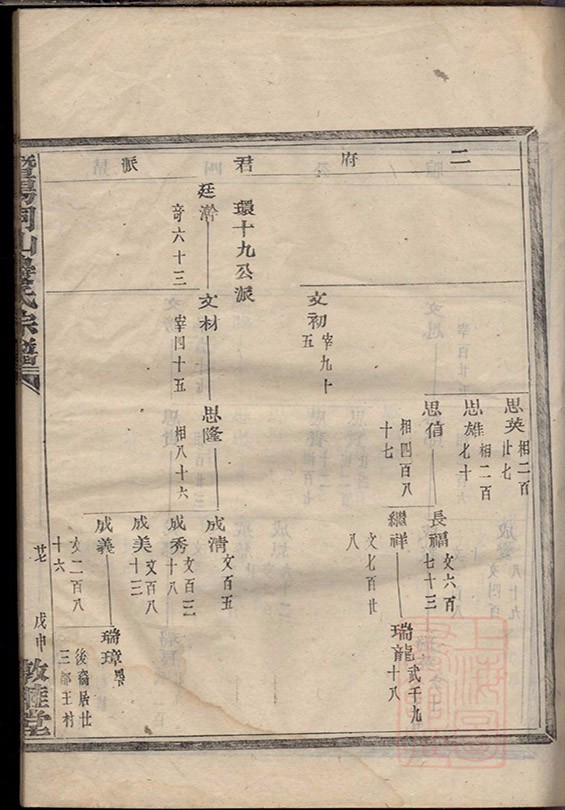 二府君派
思英 相二百廿七
思雄 相二百七十
思信 相四百八十七
長福 文六百七十三
繼祥 文七百廿八
瑞龍 武千九十八
文初 宰九十五
環十九公派
廷瀚 奇六十三
文材 宰四十五
思隆 相八十六
成清 文百五
成秀 文百三十八
成美 文百八十三
成義 文二百八十六
瑞璋 畢
後裔居廿三都王村
廿七
戊申
敦睦堂